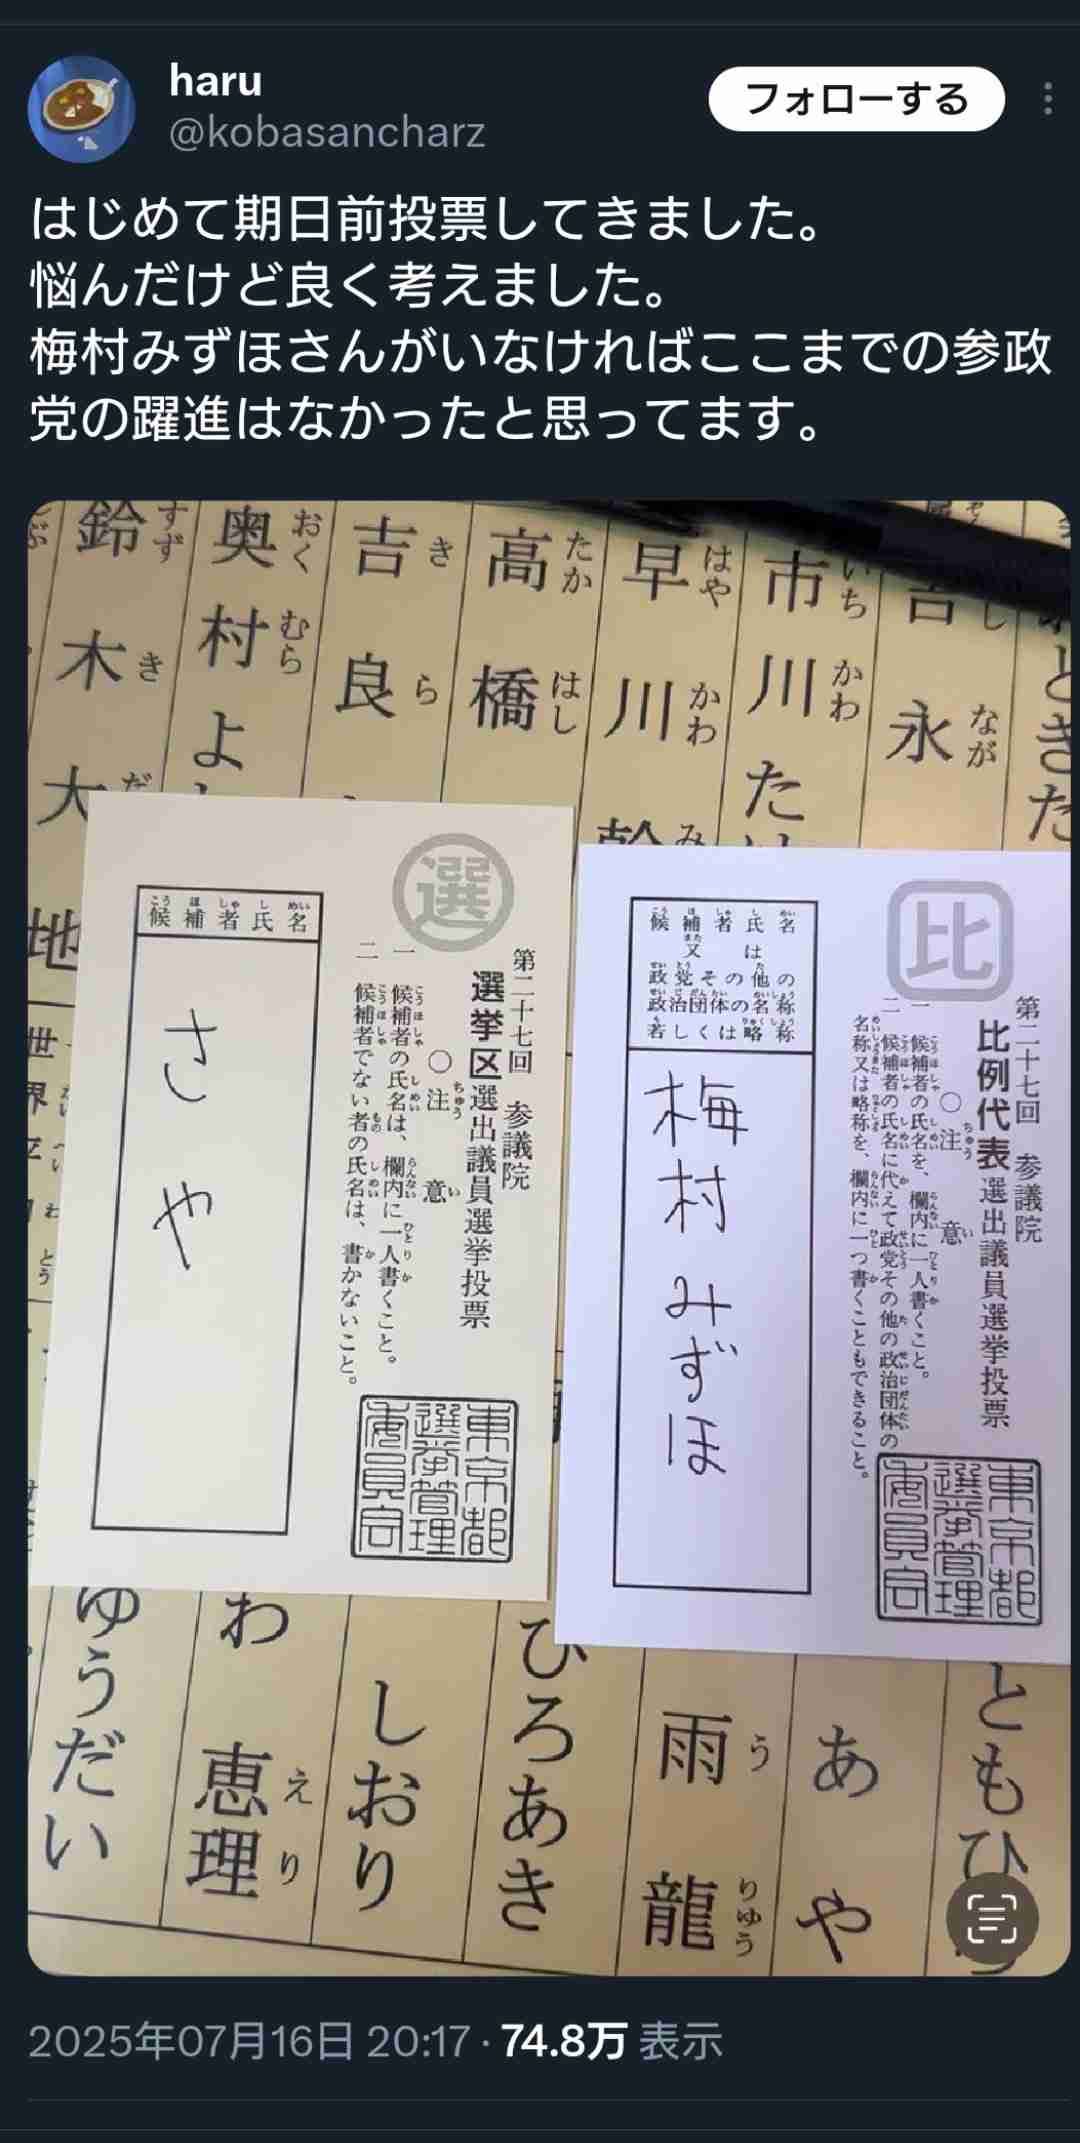 haru
@kobasancharz
フォローする
はじめて期日前投票してきました。
悩んだけど良く考えました。
梅村みずほさんがいなければここまでの参政
党の躍進はなかったと思ってます。
ときた
永 なが
市川 いちかわ た
早川 はやかわ 幹 み
高橋 たかはし
吉良 きら
奥村 おくむら よ
鈴木 すずき 大 だ
地
世
界
比
第二十七回 参議院
比例代表選出議員選挙投票
○注 ちゅう 意 い
一 候補者の氏名を、欄内に一人書くこと。
二 候補者の氏名に代えて政党その他の政治団体の
名称又は略称を、欄内に一つ書くこともできること。
候補者氏名
又は
政党その他の
政治団体の名称
若しくは略称
梅村 みずほ
東京都
選挙管理
委員会
選
第二十七回 参議院
選挙区選出議員選挙投票
○注 ちゅう 意 い
一 候補者の氏名は、欄内に一人書くこと。
二 候補者でない者の氏名は、書かないこと。
候補者氏名
さや
東京都
選挙管理
委員会
ともひ
あや
雨龍 うりゅう
ひろあき
しおり
わ 恵理 えり
ゆうだい
2025年07月16日 20:17 · 74.8万 表示